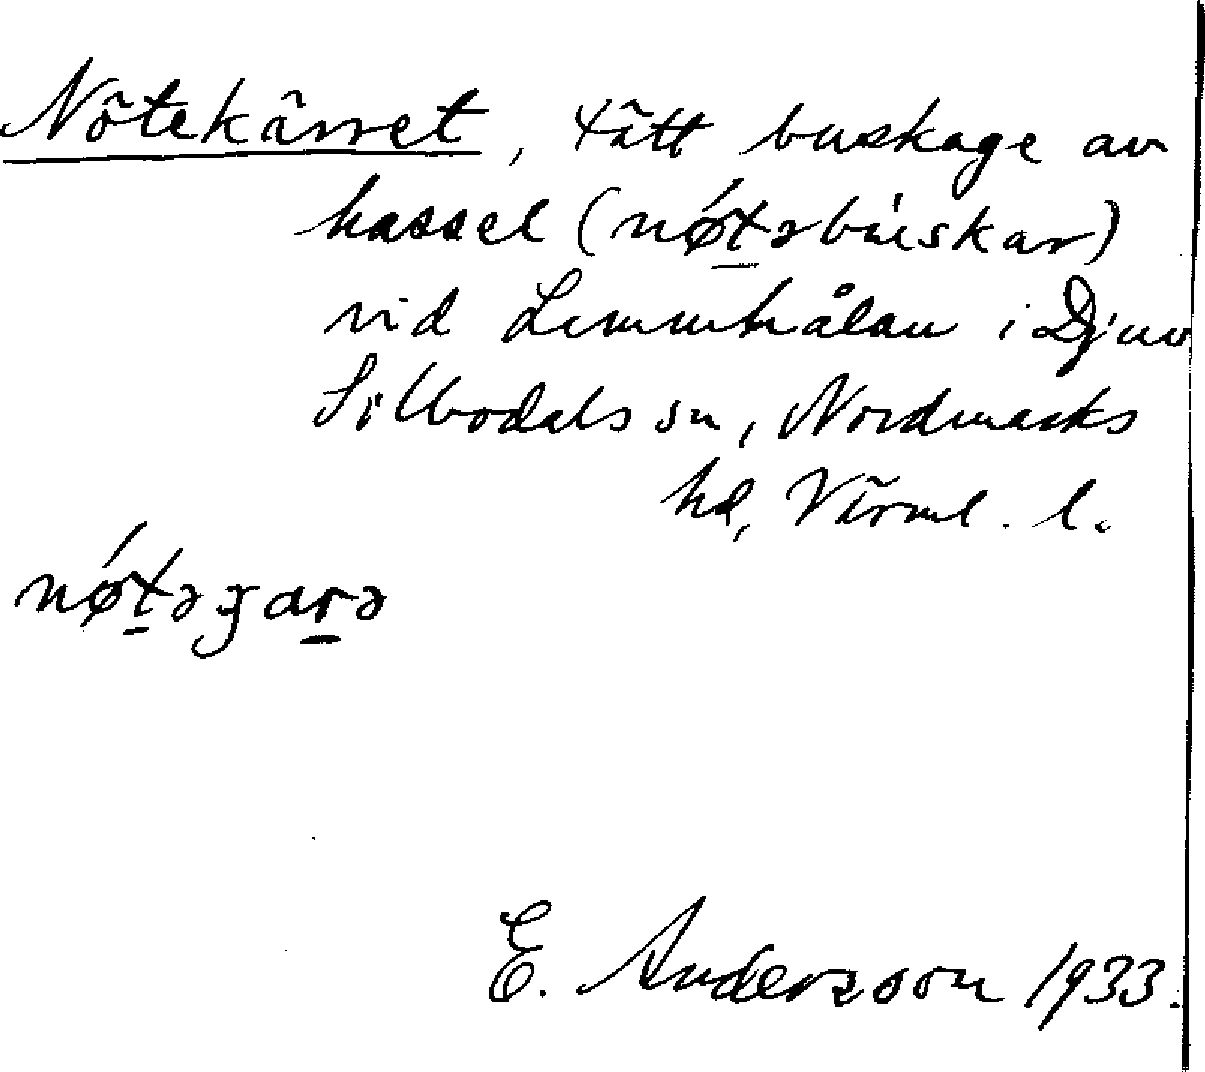 Nötekärret, tätt buskage av
hassel (nǿt̠əbúskar)
vid Lemmhålan i Djuv
Sillbodals sn, Nordmarks
hd, Värml. l.
nǿt̠əʒar̠ə
E. Andersson 1933.